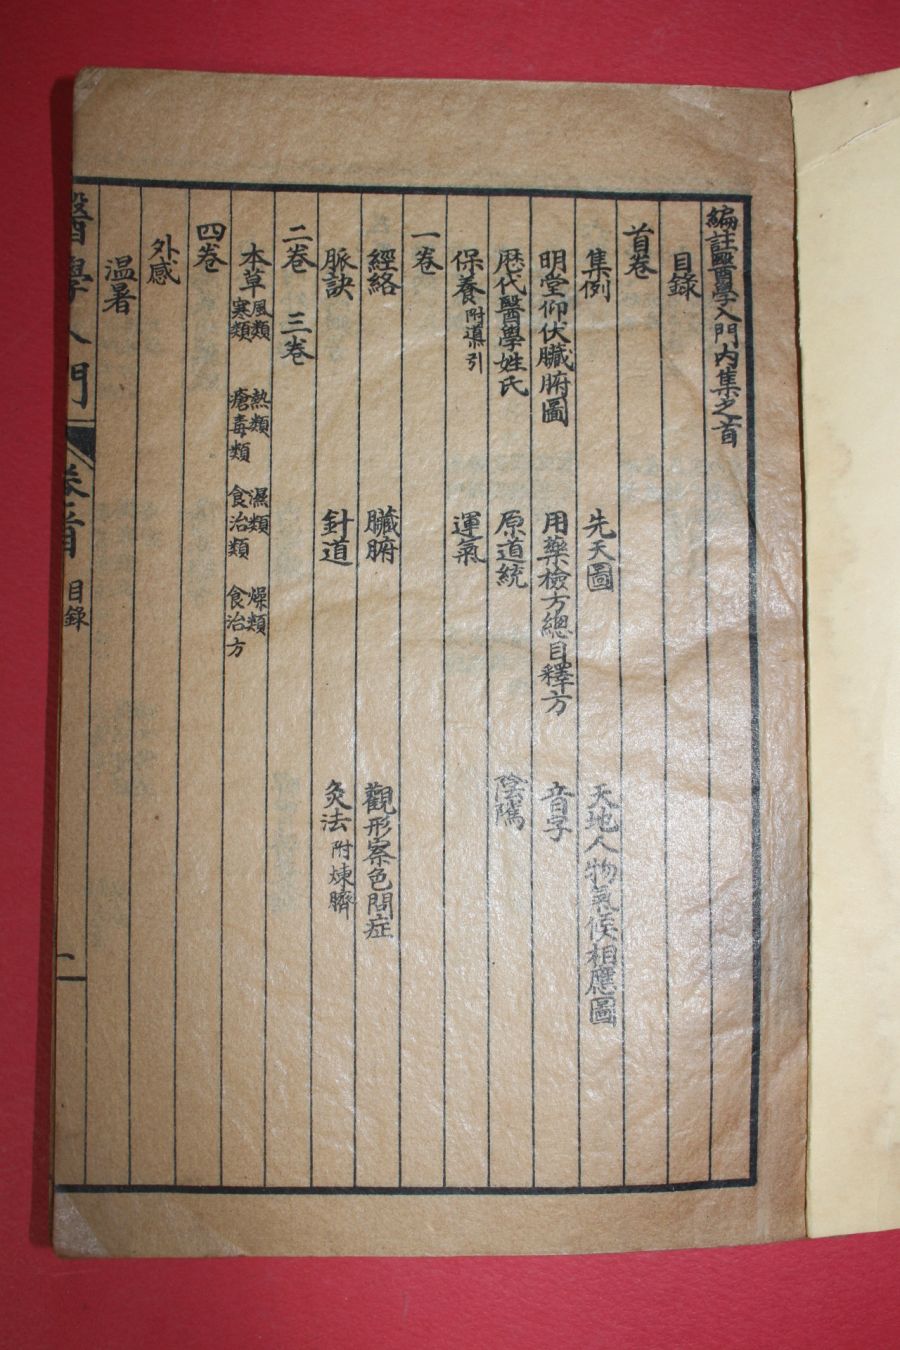 編註醫學入門內集之首
目錄
首卷
集例　先天圖　天地人物氣候相應圖
明堂仰伏臟腑圖　用藥檢方總目釋方　音字
歷代醫學姓氏　原道統　陰隲
保養附導引　運氣
一卷
經絡　臟腑　觀形察色問症
脈訣　針道　灸法附煉臍
二卷　三卷
本草風類寒類　熱類瘡毒類　濕類食治類　燥類食治方
四卷
外感
温暑
醫學入門　卷首　目錄　一